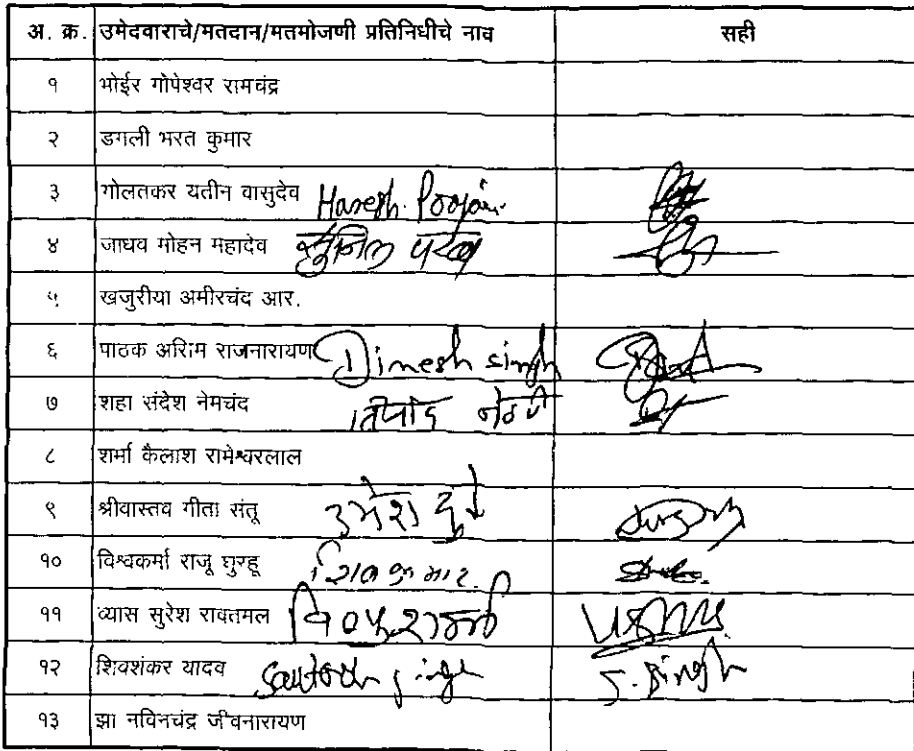 अ. क्र. उमेदवाराचे/मतदान/मतमोजणी प्रतिनिधीचे नाव सही
१ भोईर गोपेश्वर रामचंद्र
२ डगली भरत कुमार
३ गोलतकर यतीन वासुदेव Haresh
४ जाधव मोहन महादेव सुनिल
५ खजुरीया अमीरचंद आर.
६ पाठक अरिाम राजनारायण Dinesh singh
७ शहा संदेश नेमचंद
८ शर्मा कैलाश रामेश्वरलाल
९ श्रीवास्तव गीता संतू उमेश दुबे
१० विश्वकर्मा राजू घुरहू शिवकुमार
११ व्यास सुरेश रावतमल शर्मा
१२ शिवशंकर यादव Santosh singh S. Singh
१३ झा नविनचंद्र जीवनारायण